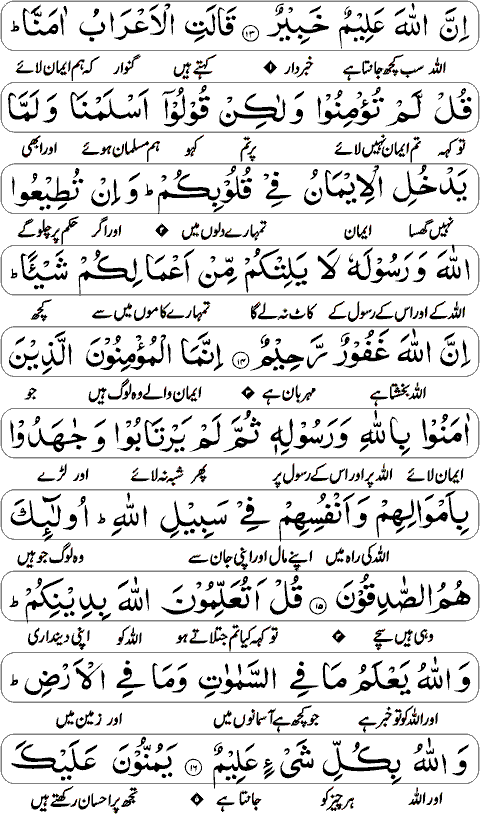 اِنَّ اللّٰهَ عَلِيْمٌ خَبِيْرٌ ۝۱۳ قَالَتِ الْاَعْرَابُ اٰمَنَّا ؕ
اللہ سب کچھ جانتا ہے خبردار کہتے ہیں گنوار کہ ہم ایمان لائے
قُلْ لَّمْ تُؤْمِنُوْا وَلٰكِنْ قُوْلُوْۤا اَسْلَمْنَا وَلَمَّا
تو کہہ تم ایمان نہیں لائے پر تم کہو ہم مسلمان ہوئے اور ابھی
يَدْخُلِ الْاِيْمَانُ فِيْ قُلُوْبِكُمْ ؕ وَاِنْ تُطِيْعُوا
نہیں گھسا ایمان تمہارے دلوں میں اور اگر حکم پر چلو گے
اللّٰهَ وَرَسُوْلَهٗ لَا يَلِتْكُمْ مِّنْ اَعْمَالِكُمْ شَيْـًٔا ؕ
اللہ کے اور اس کے رسول کے کاٹ نہ لے گا تمہارے کاموں میں سے کچھ
اِنَّ اللّٰهَ غَفُوْرٌ رَّحِيْمٌ ۝۱۴ اِنَّمَا الْمُؤْمِنُوْنَ الَّذِيْنَ
اللہ بخشتا ہے مہربان ہے ایمان والے وہ لوگ ہیں جو
اٰمَنُوْا بِاللّٰهِ وَرَسُوْلِهٖ ثُمَّ لَمْ يَرْتَابُوْا وَجٰهَدُوْا
ایمان لائے اللہ پر اور اس کے رسول پر پھر شبہ نہ لائے اور لڑے
بِاَمْوَالِهِمْ وَاَنْفُسِهِمْ فِيْ سَبِيْلِ اللّٰهِ ؕ اُولٰٓئِكَ
اللہ کی راہ میں اپنے مال اور اپنی جان سے وہ لوگ جو ہیں
هُمُ الصّٰدِقُوْنَ ۝۱۵ قُلْ اَتُعَلِّمُوْنَ اللّٰهَ بِدِيْنِكُمْ ؕ
وہی ہیں سچے تو کہہ کیا تم جتلاتے ہو اللہ کو اپنی دینداری
وَاللّٰهُ يَعْلَمُ مَا فِي السَّمٰوٰتِ وَمَا فِي الْاَرْضِ ؕ
اور اللہ کو تو خبر ہے جو کچھ ہے آسمانوں میں اور زمین میں
وَاللّٰهُ بِكُلِّ شَيْءٍ عَلِيْمٌ ۝۱۶ يَمُنُّوْنَ عَلَيْكَ
اور اللہ ہر چیز کو جانتا ہے تجھ پر احسان رکھتے ہیں